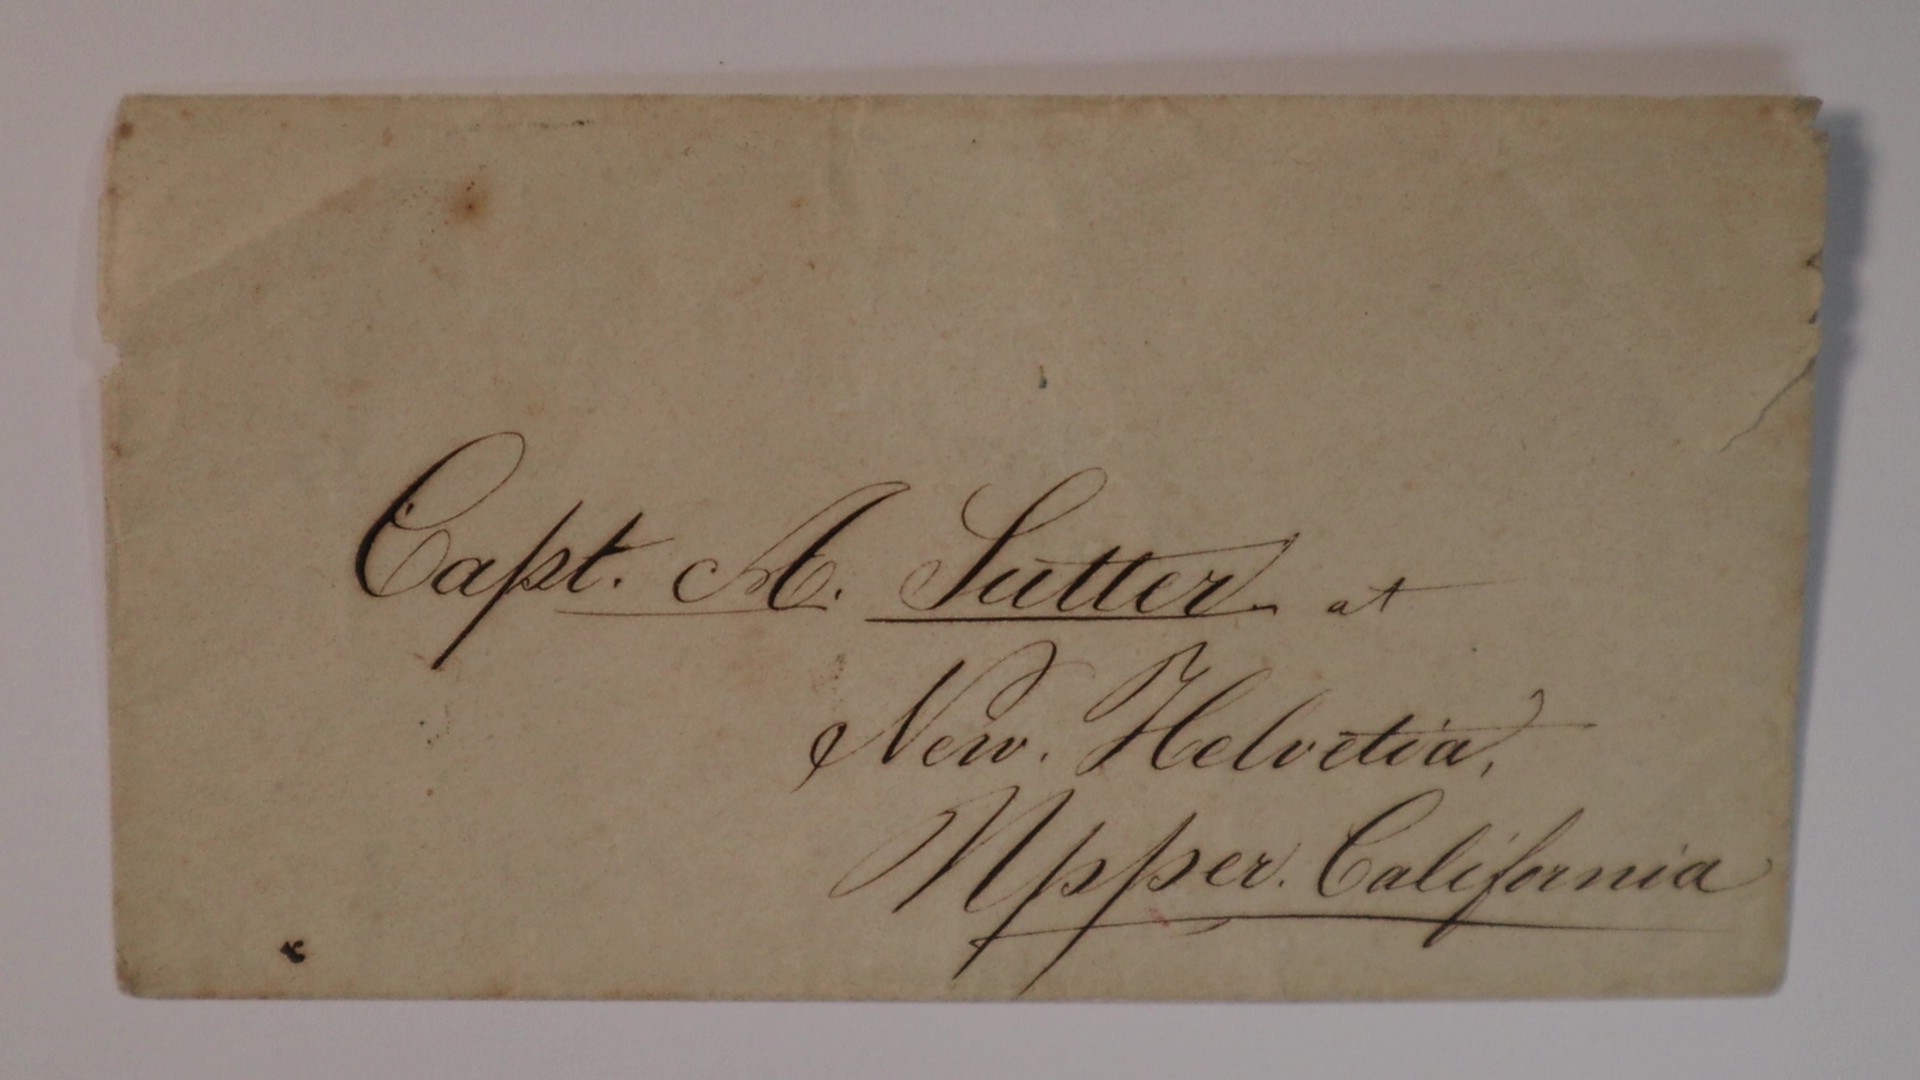 Capt. A. Sutter at
New. Helvetia,
Upper. California